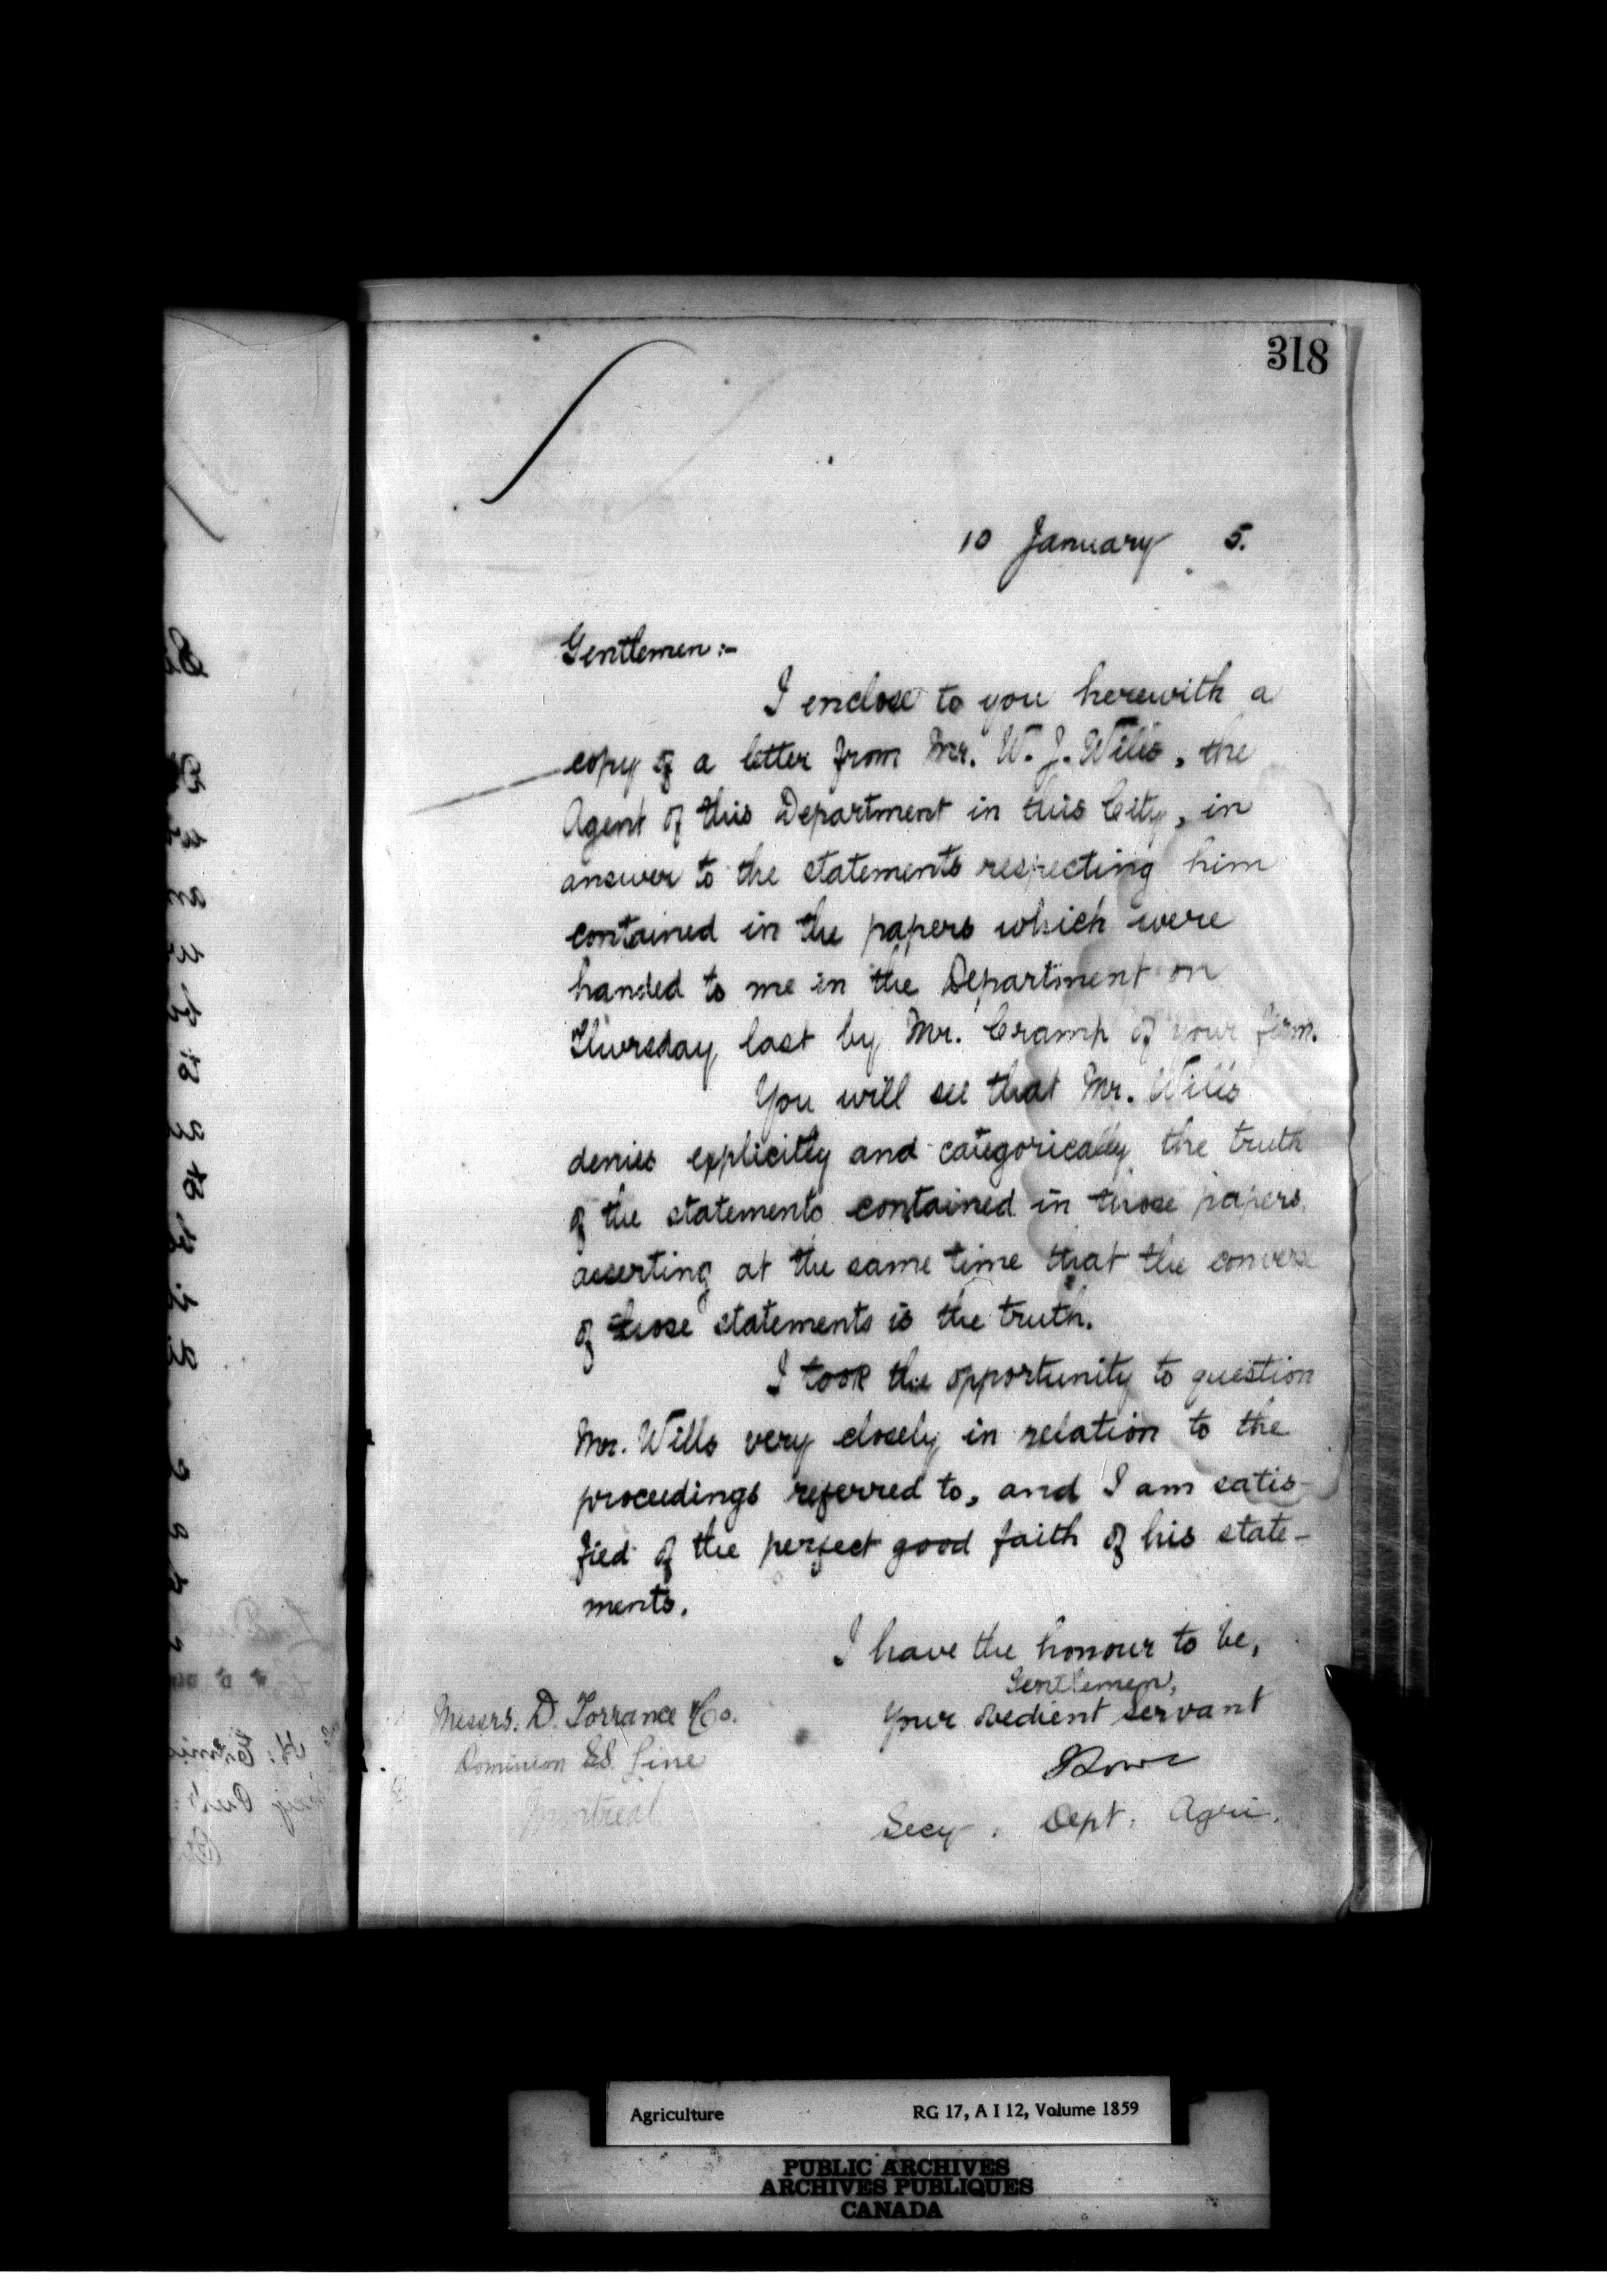 318
10 January 5.
Gentlemen:-
I enclose to you herewith a
copy of a letter from Mr. W. J. Wills, the
Agent of this Department in this City, in
answer to the statements respecting him
contained in the papers which were
handed to me in the Department on
Thursday last by Mr. Cramp of your firm.
You will see that Mr. Wills
denies explicitly and categorically the truth
of the statements contained in those papers
asserting at the same time that the converse
of those statements is the truth.
I took the opportunity to question
Mr. Wills very closely in relation to the
proceedings referred to, and I am satis-
fied of the perfect good faith of his state-
ments.
I have the honour to be,
Gentlemen,
Your obedient servant
Lowe
Secy. Dept. Agri.
Messrs. D. Torrance & Co.
Dominion SS. Line
Montreal
Agriculture RG 17, A I 12, Volume 1859
PUBLIC ARCHIVES
ARCHIVES PUBLIQUES
CANADA